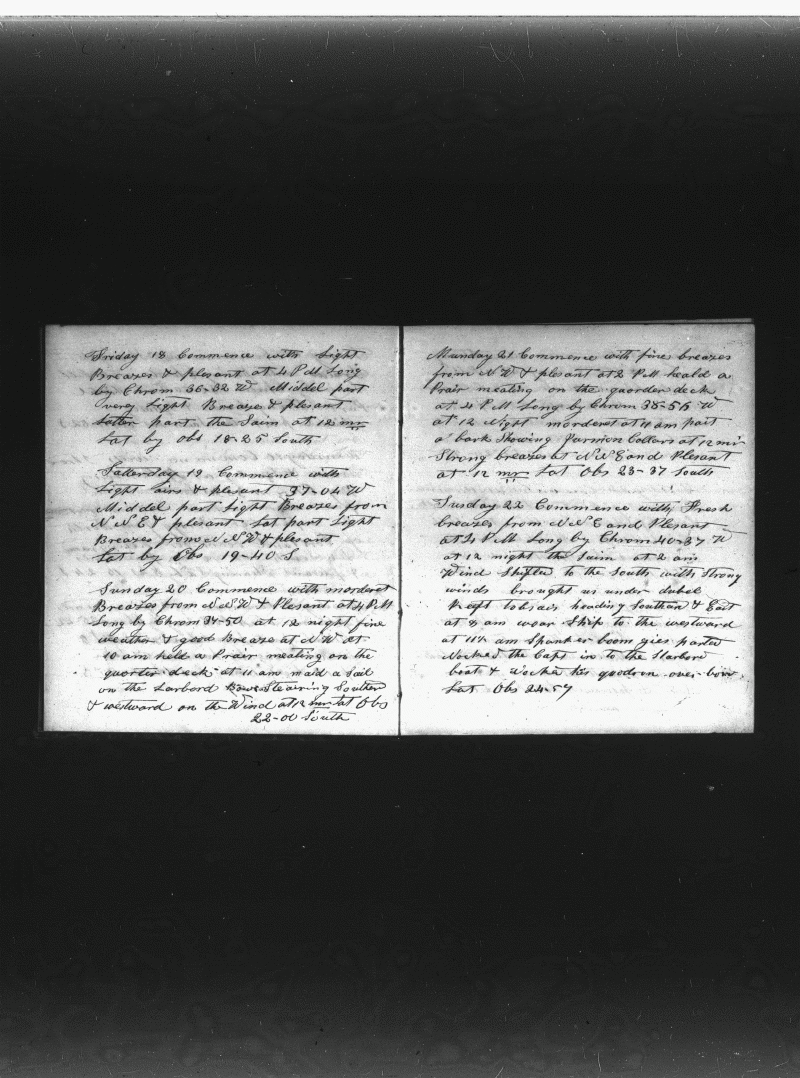 Friday 18 Commence with Light
Breazes & plesant at 4 PM Long
by Chrom 36-32 W Middel part
verey Light Breaze & plesant
Latter part the Saim at 12 mr
Lat by obs 18-25 South
Satterday 19 Commence with
Light airs & plesant 37-04 W
Middel part Light Breazes from
N N E & plesant Lat part Light
Breazes from N N W & plesant
Lat by Obs 19-40 S
Sunday 20 Commence with morderet
Breazes from N N W & Plesant at 4 PM
Long by Chrom 38-50 at 12 night fine
weather & good Breaze at N W at
10 am held a Prair meating on the
quorter deck at 11 am maid a Sail
on the Larbord Bow Stearing Southen
& westward on the Wind at 12 mr Lat Obs
22-00 South
Munday 21 Commence with fine breazes
from N W & plesant at 2 PM heald a
Prair meating on the quorder deck
at 4 PM Long by Chrom 38-56 W
at 12 Night morderet at 4 am part
a bark Showing Collars at 12 mr
Strong breazes at N W E and Plesant
at 12 mr Lat Obs 23-37 South
Tusday 22 Commence with Fresh
breazes from N N E and Plesant
at 4 PM Long by Chrom 40-37 W
at 12 night the Saim at 2 am
Wind Shifted to the South with Strong
winds brought us under dubel
heading Southan & East
at 8 am wear Ship to the westward
at 11½ am Spanker boom gies parted
Nocked the Capt in to the Starbord
boat & Nocked his over-bord
Lat Obs 24-57